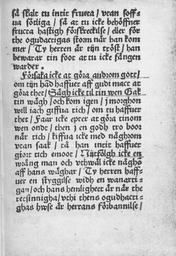 sã skalt tu intit frucea / vtan soff-
na sötliga / sã at tu icke behöffuer
frucea hastigh förskreckilse / eller för
the ogudactigas storm när han kom
mer / Ty herren är tijn tröst / han
bewarar tin foot at tu icke fãngen
warder.
Försaka icke at göra
göra thet / Sägh icke til tin wen Gak
tin wägh / och kom igen / j morghon
wil iach giffua tich / om tu haffuer
thet / Faar icke epter at göra tinom
wen ondt / then j en godh tro boor
när tich / kiffua icke med nãghrom
vtan saak / tã han intit haffuer
giort tich emoot / icke en
wrãng man och vthwäl icke nãgho
aff hans wäghar / Ty herren haffu-
er en styggilse widh en wanarti-
gan / och hans henligheet är när the
retsinnigha / vthi thens ogudhacti-
ghas hwse är herrans förbannilse /